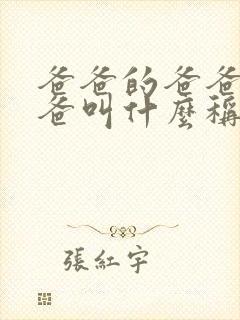 爸爸的爸爸
爸叫什麼稱
張紅宇